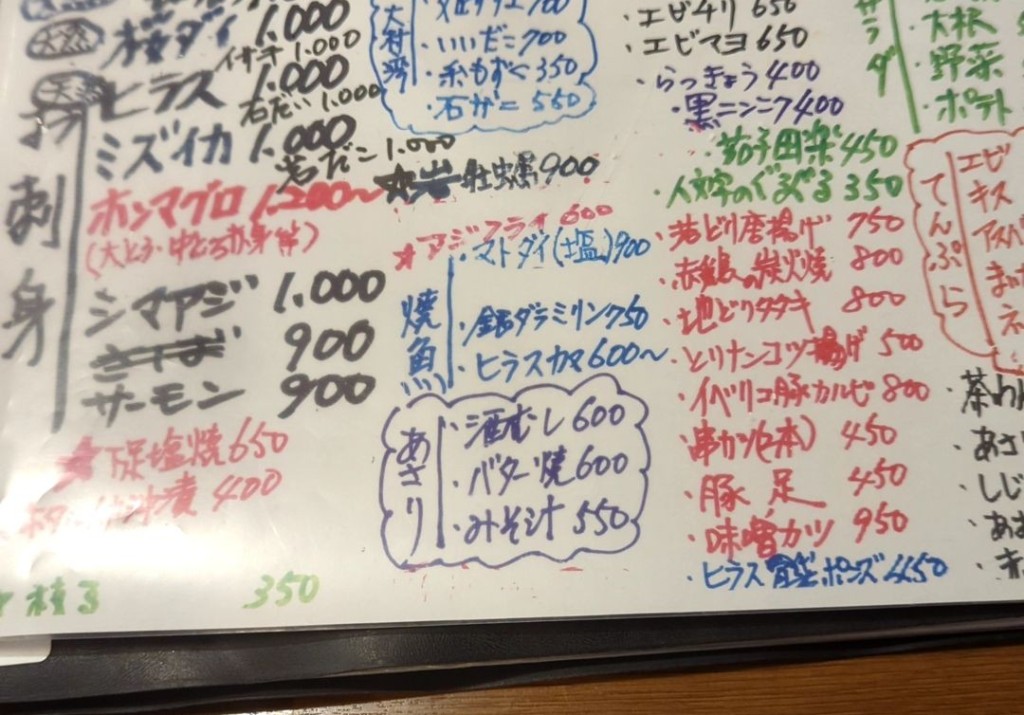 天然 桜ダイ 1.000
イサキ 1.000
天然 ヒラス 1.000
石だい 1.000
ミズイカ 1.000
岩だこ 1.000
ホンマグロ 1.200〜
刺身
シマアジ 1.000
900
サーモン 900
下足塩焼 650
400
350
大村湾
700
・いいだこ 700
・糸もずく 350
・石ガニ 550
牡蠣 900
アジフライ 600
焼魚
・マトダイ(塩) 900
・銀ダラミリン 750
・ヒラスカマ 600〜
あさり
・酒むし 600
・バター焼 600
・みそ汁 550
・エビチリ 650
・エビマヨ 650
・らっきょう 400
・黒ニンニク 400
・茄子田楽 450
・人文字のぐるぐる 350
・若どり唐揚げ 750
・赤鶏の炭火焼 800
・地どりタタキ 800
・とりナンコツ揚げ 500
・イベリコ豚カルビ 800
・串カツ(2本) 450
・豚足 450
・味噌カツ 950
・ヒラス ポンズ 450
サラダ
・大根
・野菜
・ポテト
てんぷら
エビ
キス
アスパ
茶わ
あさ
しじ
あお
赤